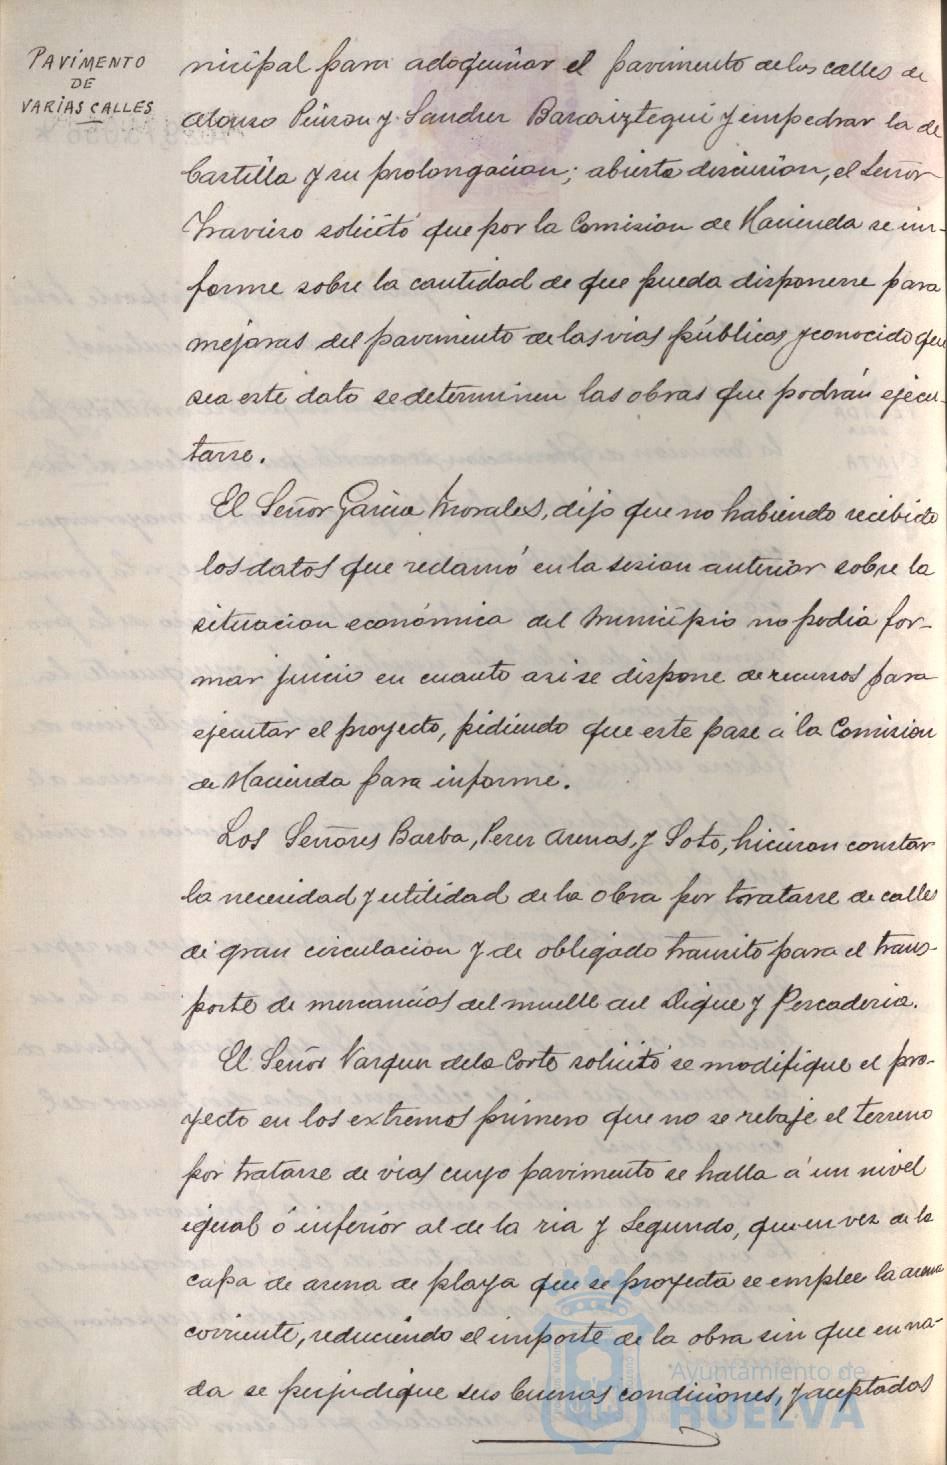 PAVIMENTO
DE
VARIAS CALLES
nicipal para adoquinar el pavimento de las calles de
Alonso Pinzon y Sanchez Barcaiztegui y empedrar la de
Castilla y su prolongacion; abierta discusion, el Señor
Travieso solicitó que por la Comision de Hacienda se in-
forme sobre la cantidad de que pueda disponerse para
mejoras del pavimento de las vias públicas y conocido que
sea este dato se determinen las obras que podrán ejecu-
tarse.
El Señor Garcia Morales, dijo que no habiendo recibido
los datos que reclamó en la sesion anterior sobre la
situacion económica del Municipio no podia for-
mar juicio en cuanto a si se dispone de recursos para
ejecutar el proyecto, pidiendo que este pase á la Comision
de Hacienda para informe.
Los Señores Barba, Perez Arenas, y Soto, hicieron constar
la necesidad y utilidad de la obra por tratarse de calles
de gran circulacion y de obligado transito para el trans-
porte de mercancias del muelle del Dique y Pescaderia.
El Señor Vazquez de la Corte solicitó se modifique el pro-
yecto en los extremos primero que no se rebaje el terreno
por tratarse de vias cuyo pavimento se halla á un nivel
igual ó inferior al de la ria y Segundo, que en vez de la
capa de arena de playa que se proyecta se emplee la arena
corriente, reduciendo el importe de la obra sin que en na-
da se perjudique sus buenas condiciones, y aceptadas
Ayuntamiento de
HUELVA